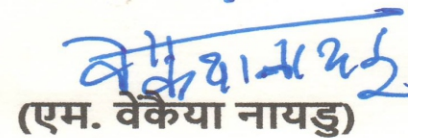 वेंकैया नायडु
(एम. वेंकैया नायडु)